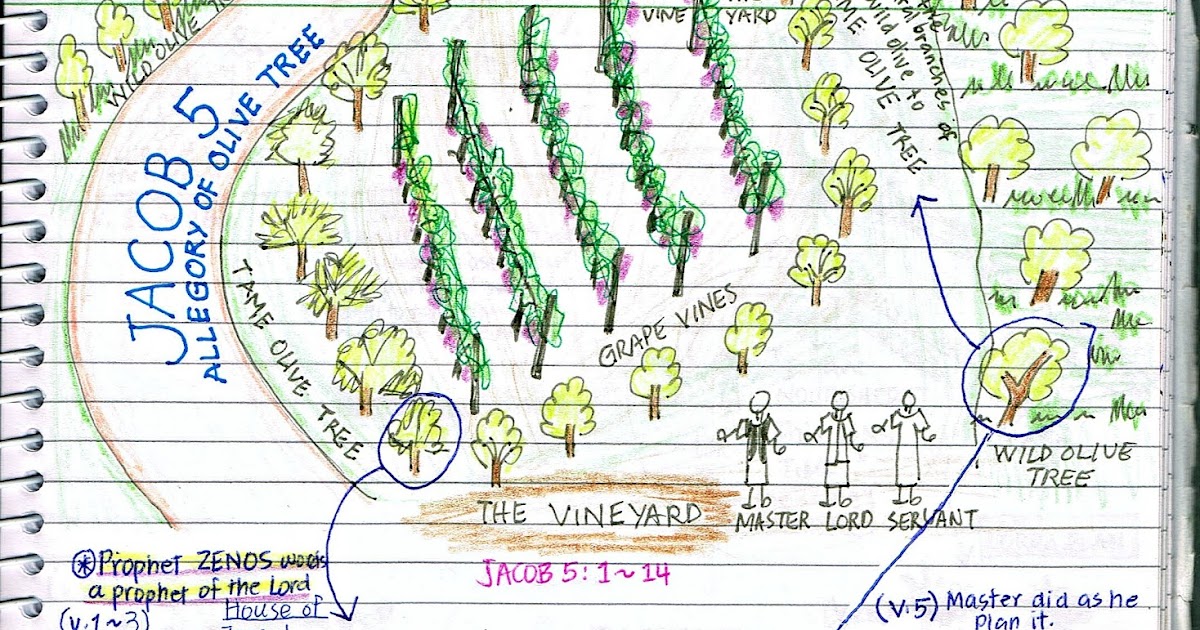 WILD OLIVE
JACOB 5
ALLEGORY OF OLIVE TREE
VINE YARD
branches of
wild olive to
OLIVE TREE
TAME OLIVE TREE
GRAPE VINES
WILD OLIVE
TREE
THE VINEYARD
MASTER LORD SERVANT
JACOB 5:1~14
⊛Prophet ZENOS words
a prophet of the Lord
(v.1~3)
House of
(v.5) Master did as he
plan it.